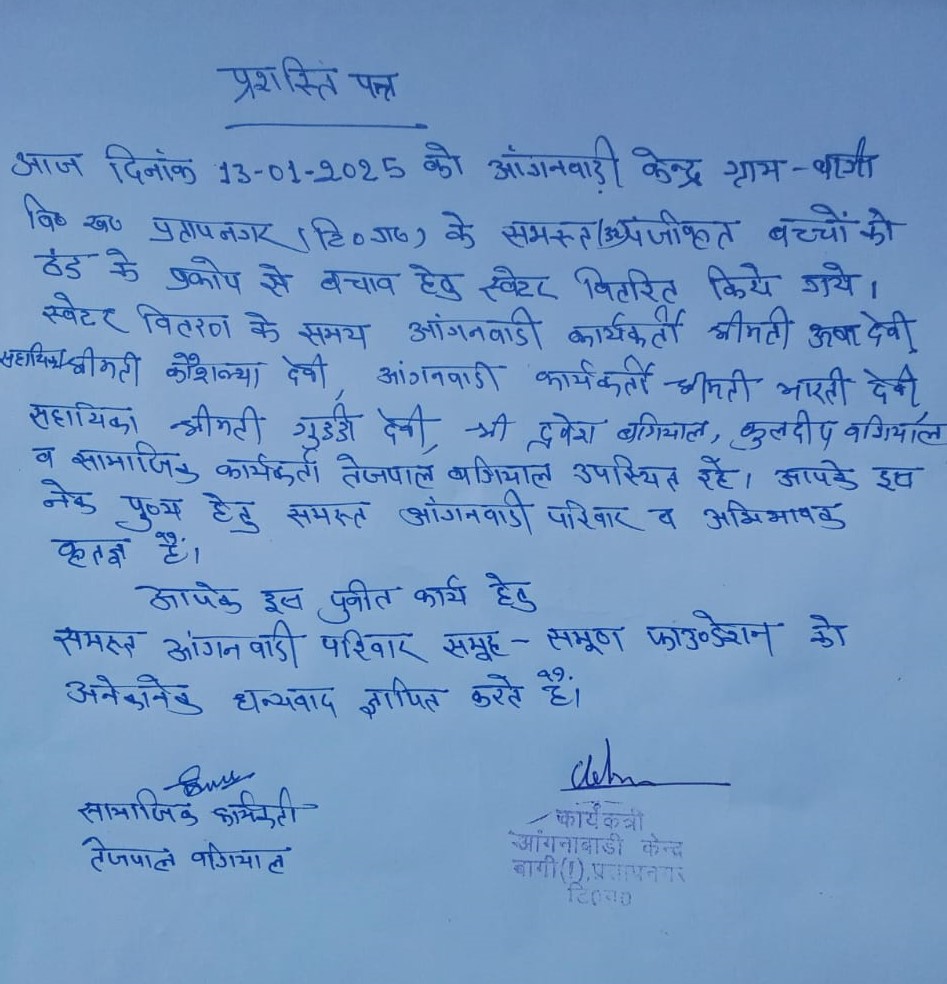 प्रशस्ति पत्र
आज दिनांक 13-01-2025 को आंगनवाड़ी केन्द्र ग्राम-बागी
वि० ख० प्रतापनगर (टि०ग०) के समस्त पंजीकृत बच्चों को
ठंड के प्रकोप से बचाव हेतु स्वेटर वितरित किये गये।
स्वेटर वितरण के समय आंगनवाडी कार्यकर्ती श्रीमती ऊषा देवी,
सहायिका श्रीमती कौशल्या देवी, आंगनवाडी कार्यकर्ती श्रीमती भारती देवी,
सहायिका श्रीमती गुड्डी देवी, श्री बगियाल, कुलदीप बगियाल
व सामाजिक कार्यकर्ता तेजपाल बगियाल उपस्थित रहे। आपके इस
नेक पुण्य हेतु समस्त आंगनवाडी परिवार व अभिभावक
कृतज्ञ हैं।
आपके इस पुनीत कार्य हेतु
समस्त आंगनवाडी परिवार समूह- समूण फाउण्डेशन को
अनेकानेक धन्यवाद ज्ञापित करते हैं।
सामाजिक कार्यकर्ता
तेजपाल बगियाल
कार्यकत्री
आंगनाबाडी केन्द्र
बागी(1), प्रतापनगर
टि०ग०